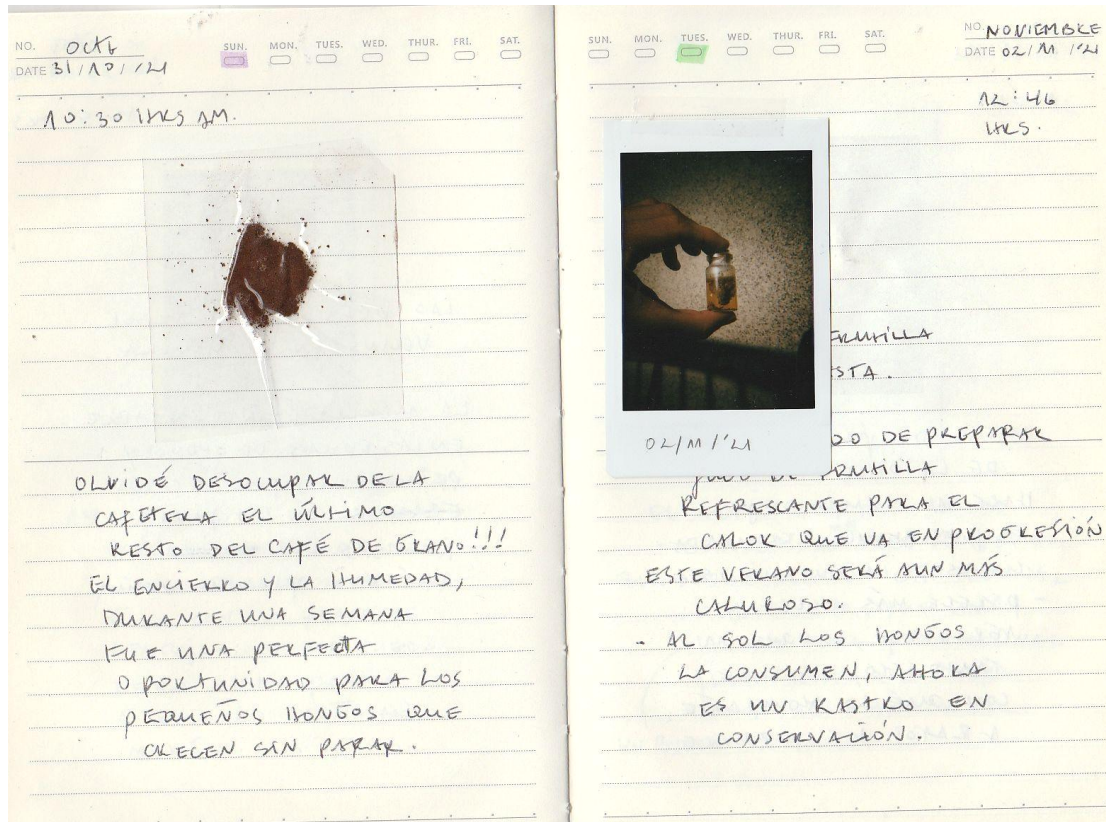 NO. OCT
DATE 31/10/'21
SUN. MON. TUES. WED. THUR. FRI. SAT.
10:30 HRS AM.
OLVIDÉ DESOCUPAR DE LA
CAFETERA EL ÚLTIMO
RESTO DEL CAFÉ DE GRANO!!!
EL ENCIERRO Y LA HUMEDAD,
DURANTE UNA SEMANA
FUE UNA PERFECTA
OPORTUNIDAD PARA LOS
PEQUEÑOS HONGOS QUE
CRECEN SIN PARAR.
SUN. MON. TUES. WED. THUR. FRI. SAT.
NO. NOVIEMBRE
DATE 02/11/'21
12:46
HRS.
02/11/'21
DO DE PREPARAR
REFRESCANTE PARA EL
CALOR QUE VA EN PROGRESIÓN
ESTE VERANO SERÁ AUN MÁS
CALUROSO.
- AL SOL LOS HONGOS
LA CONSUMEN, AHORA
ES UN RASTRO EN
CONSERVACIÓN.